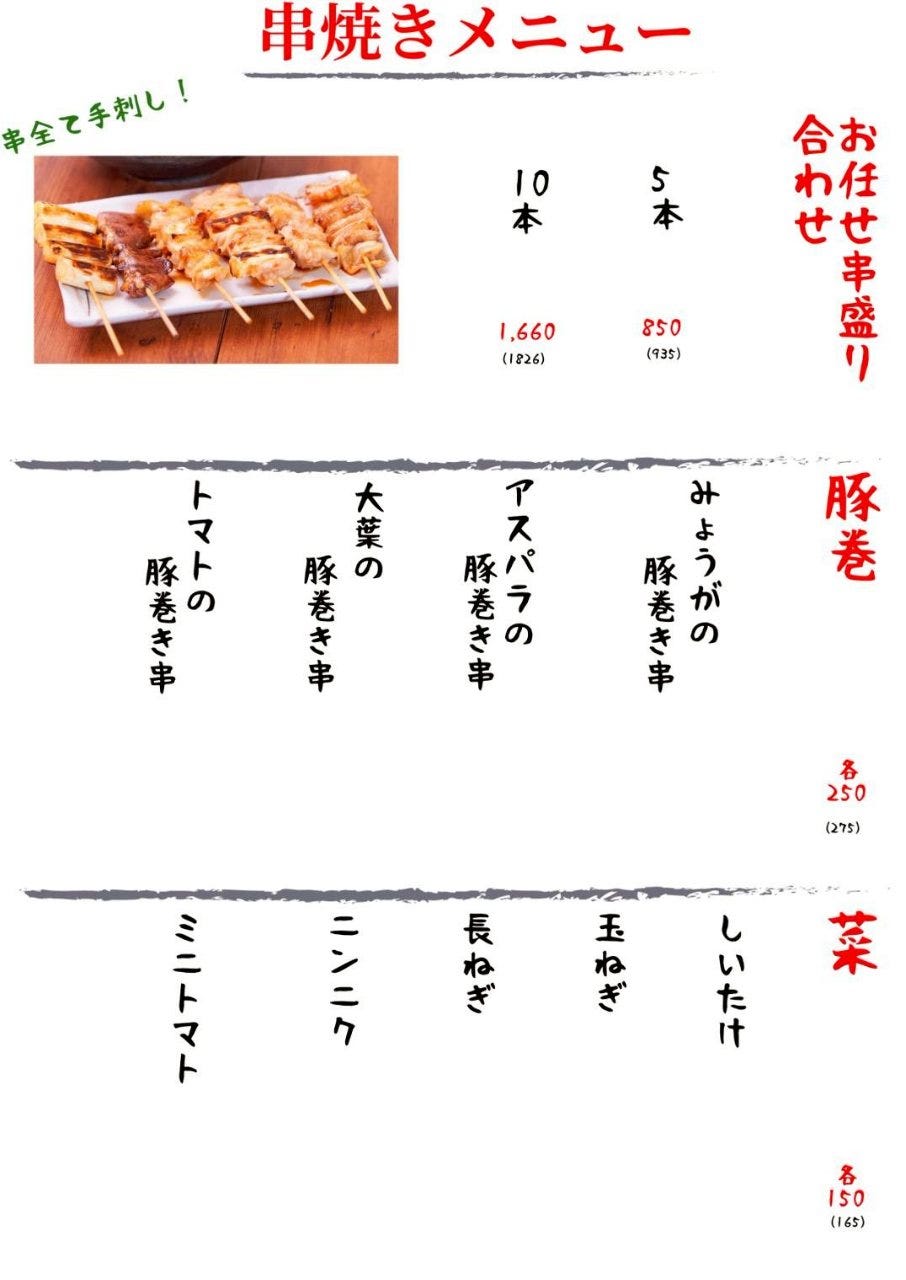 串焼きメニュー
串全て手刺し！
お任せ串盛り
合わせ
5本
850
(935)
10本
1,660
(1826)
豚巻
各
250
(275)
みょうがの
豚巻き串
アスパラの
豚巻き串
大葉の
豚巻き串
トマトの
豚巻き串
菜
各
150
(165)
しいたけ
玉ねぎ
長ねぎ
ニンニク
ミニトマト